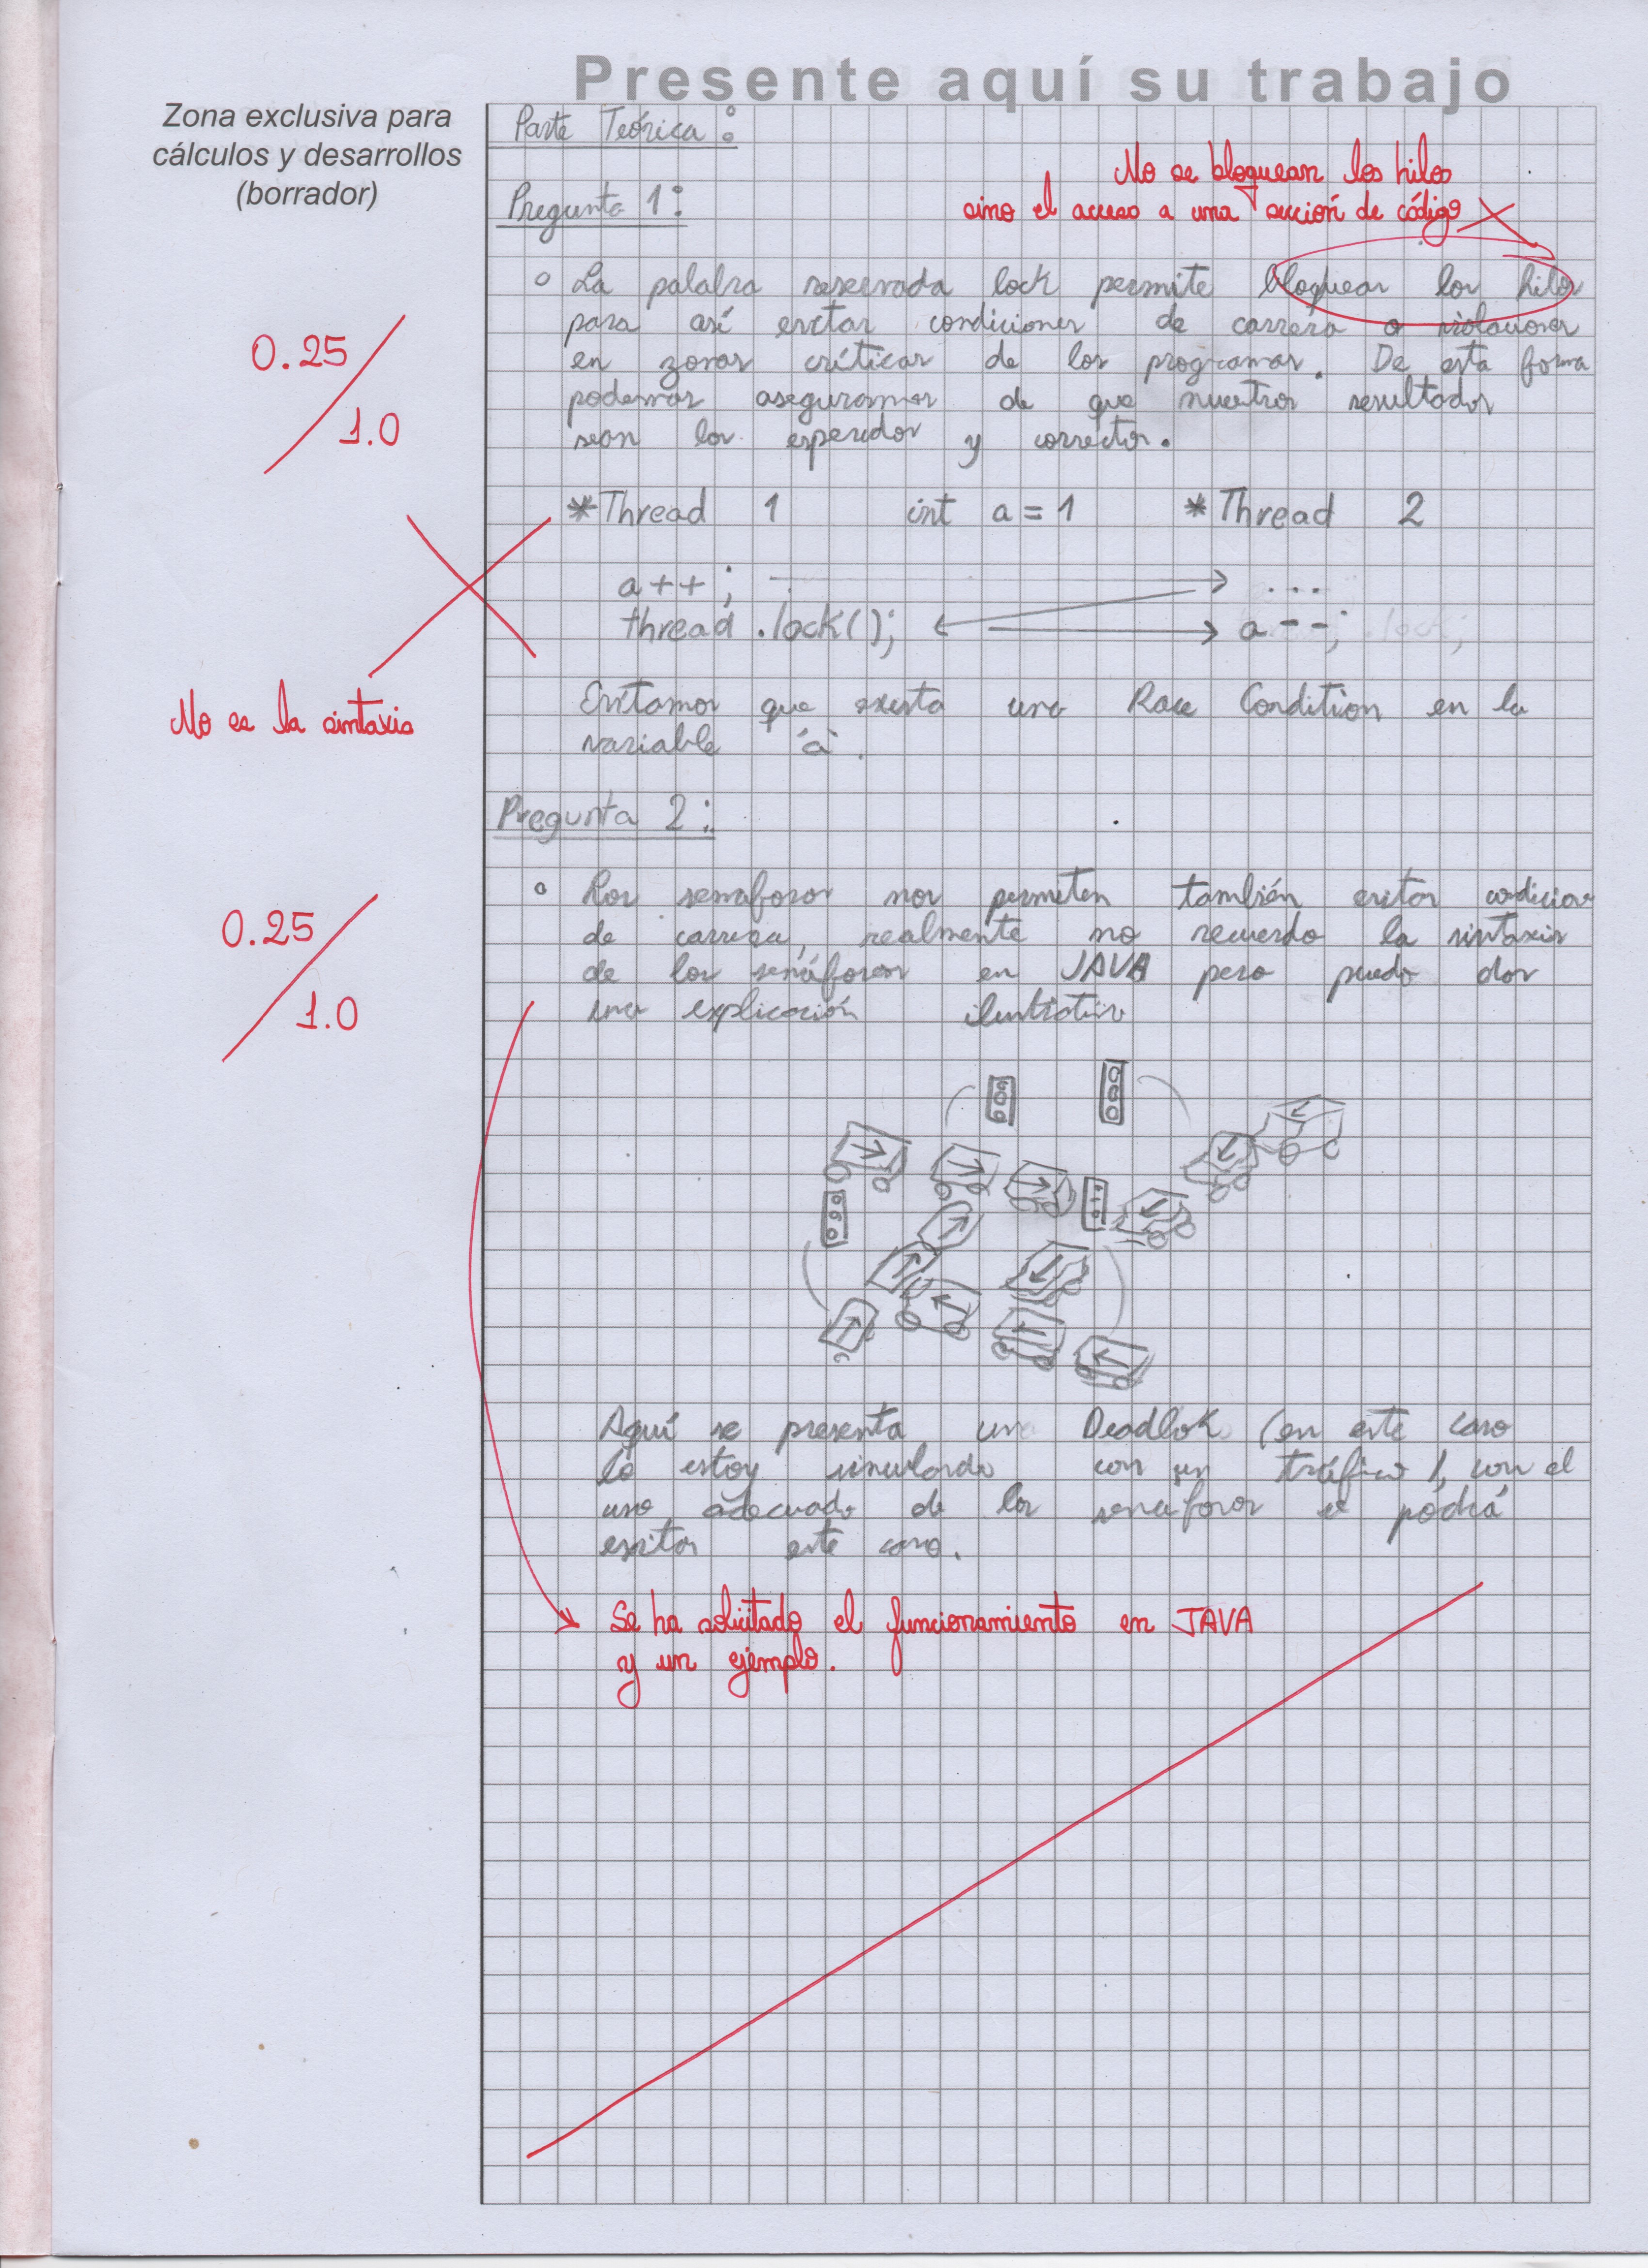 Presente aquí su trabajo
Zona exclusiva para
cálculos y desarrollos
(borrador)
Parte Teórica:
No se bloquean los hilos
sino el acceso a una sección de código
Pregunta 1:
La palabra reservada lock permite bloquear los hilos
para así evitar condiciones de carrera o violaciones
en zonas críticas de los programas. De esta forma
podemos asegurarnos de que nuestros resultados
sean los esperados y correctos.
0.25
1.0
*Thread 1 int a = 1 *Thread 2
a++; ...
thread.lock(); a--;
No es la sintaxis
Evitamos que exista una Race Condition en la
variable 'a'.
Pregunta 2:
Los semáforos nos permiten también evitar condicion
de carrera, realmente no recuerdo la sintaxis
de los semáforos en JAVA pero puedo dar
una explicación ilustrativa
0.25
1.0
Aquí se presenta un Deadlok (en este caso
lo estoy simulando con un tráfico), con el
uso adecuado de los semáforos se podrá
evitar este caso.
Se ha solicitado el funcionamiento en JAVA
y un ejemplo.